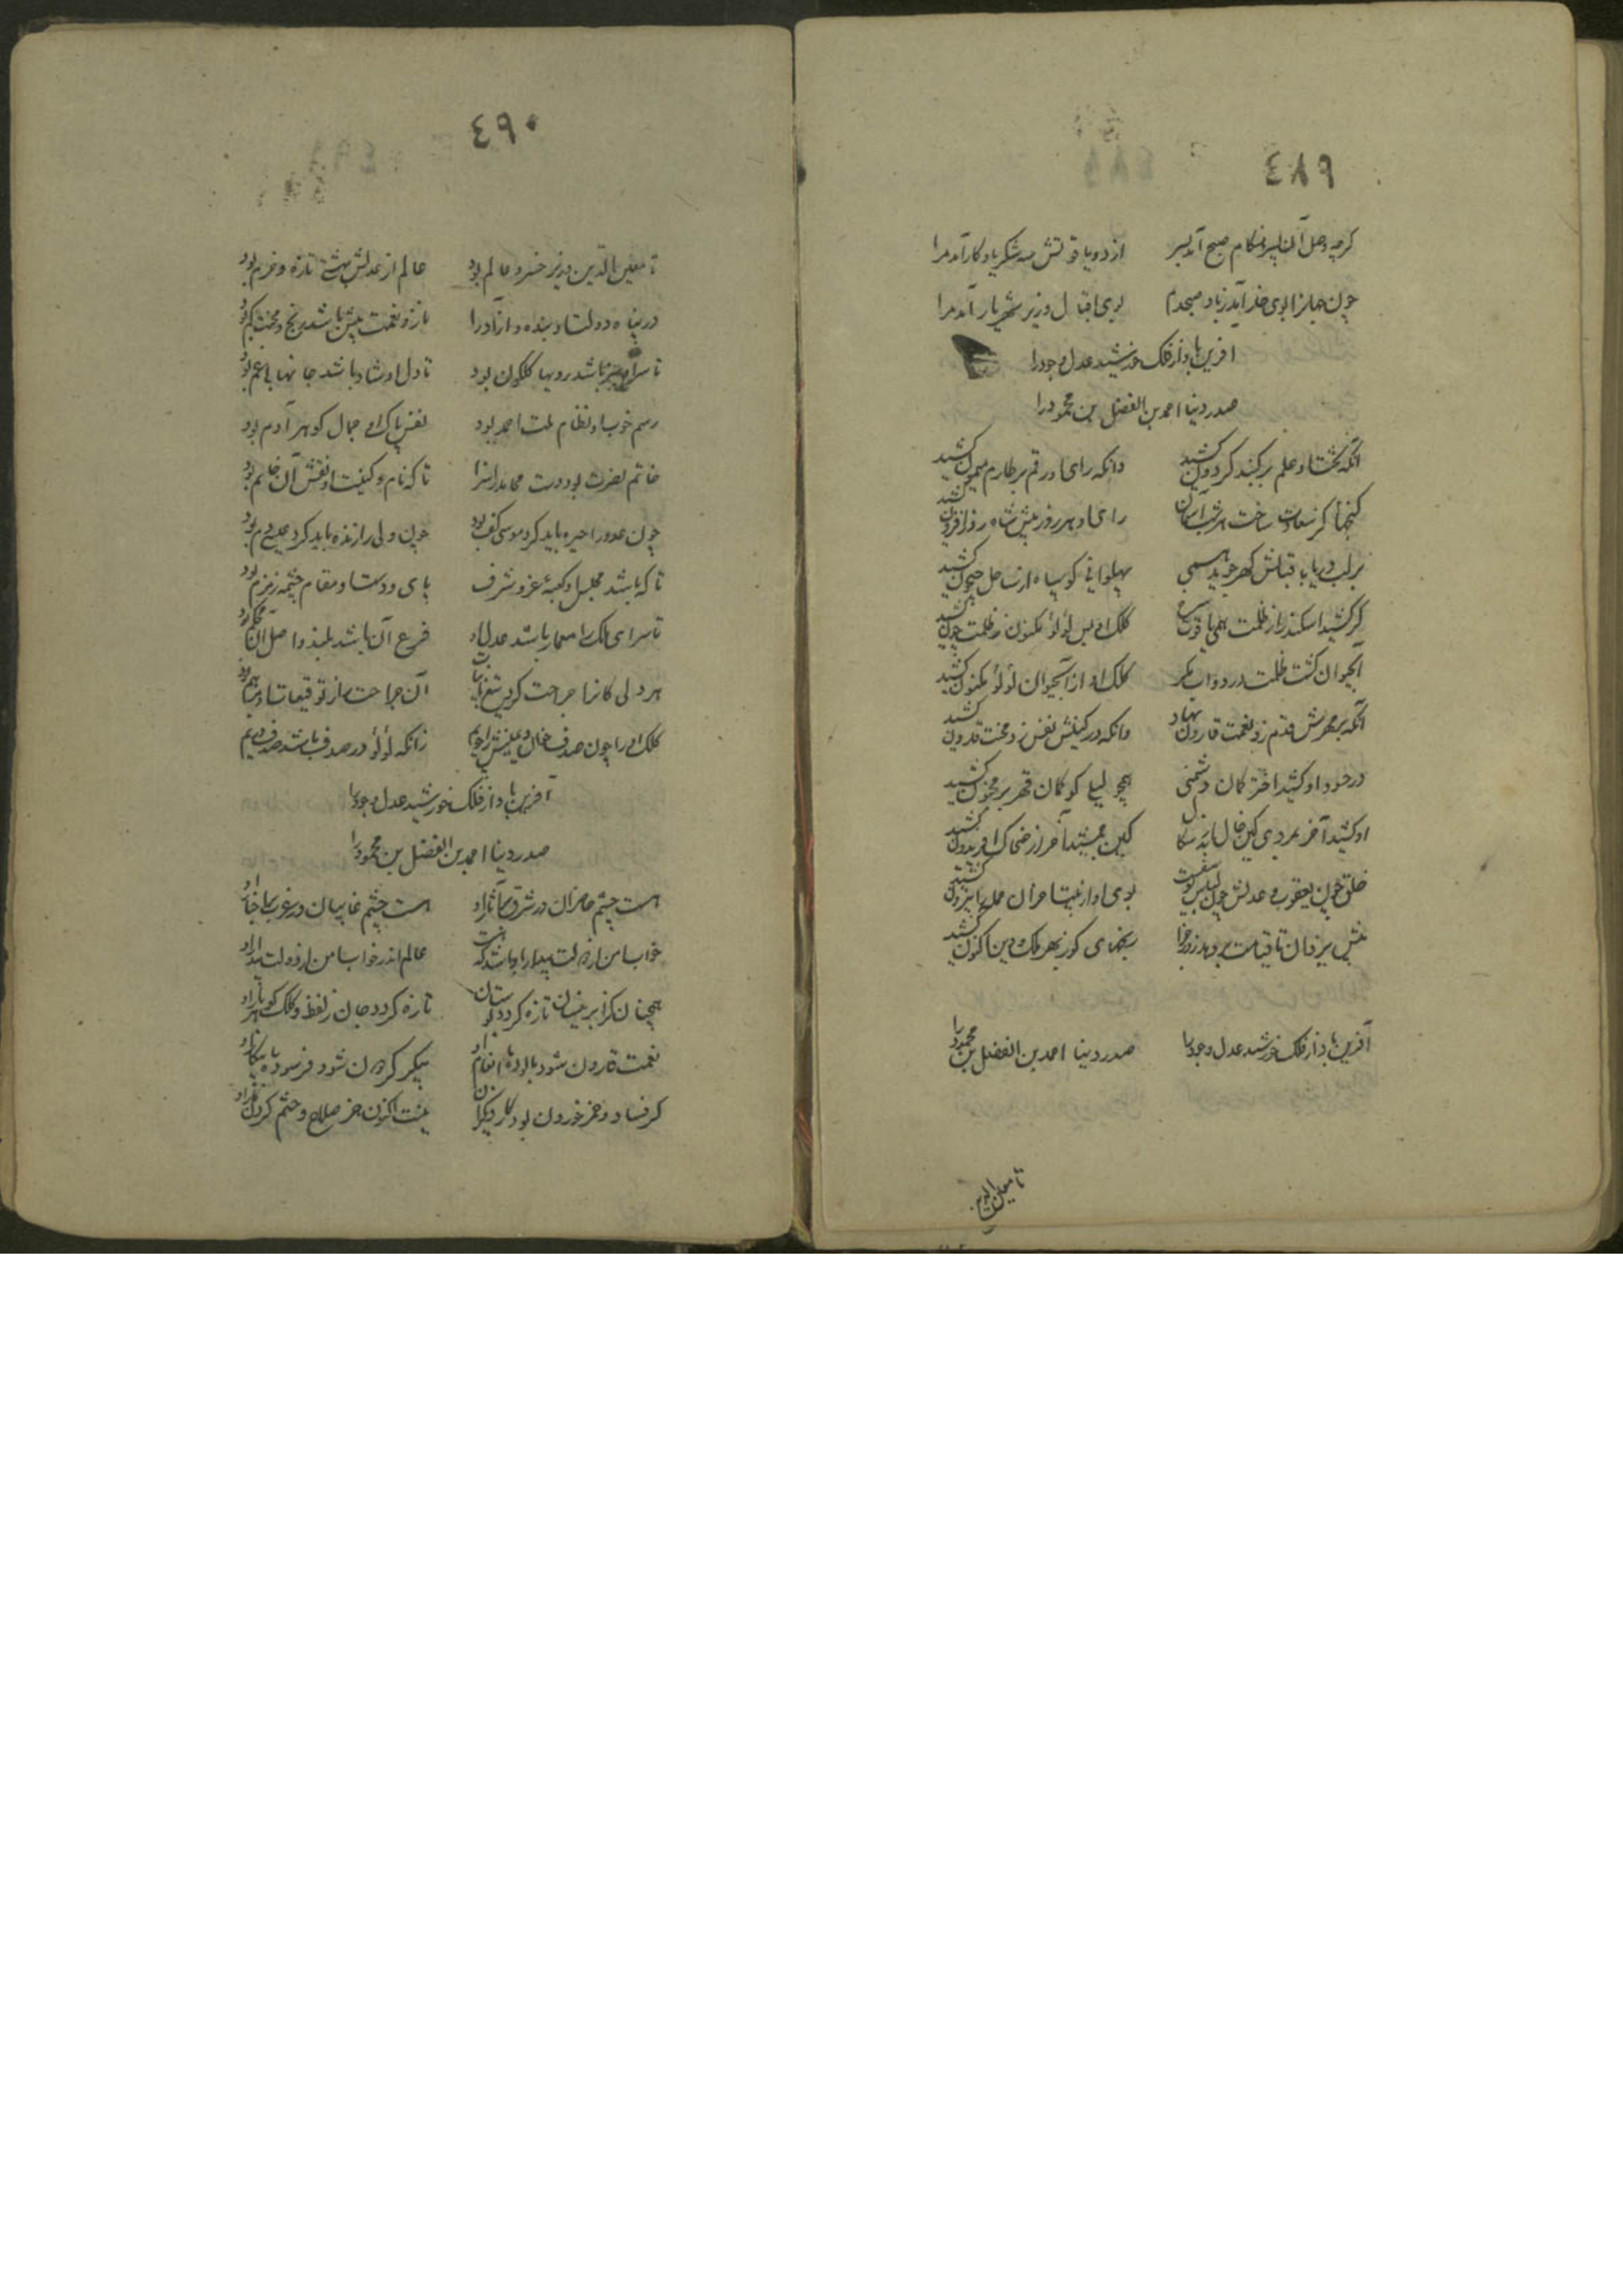 ٤٨٩
کرچه وصل آن پسر هنگام صبح آمد بسر ازدو یاقوتش سه شکر یادکار آمد مرا
چون جهانرا بوی خلد آید زباد صبحدم بوی اقبال وزیر شهریار آمد مرا
افرین باد از فلک خورشید عدل وجود را
صدر دینا احمد بن الفضل بن محمود را
آنکه بختاو علم بر کنبد کردون کشید وانکه رای او رقم بر طارم میمون کشید
کنجها کز سعادت ساخت هر شب آسمان رای او هر روز پیش شاه روز افزون کشید
بر لب دریا باقبالش کهر جوید همی پهلوانی کو سپاه از ساحل جیحون کشید
کر کشید اسکندر از ظلمت همی یاقوت کلک او بس لؤلؤ مکنون ز ظلمت چون کشید
آبحیوان کشت ظلمت در دوات کلک او از آبحیوان لؤلؤ مکنون کشید
آنکه بر مهرش قدم زد نعمت قارون نهاد وانکه در کینش نفس زد محنت قارون کشید
در حسود او کشید اختر کمان دشمنی همچو لیلی کو کمان قهر بر مجنون کشید
او کشید آخر بمردی کین خال کین جمشید آخر از ضحاک افریدون کشید
خلق چون یعقوب و عدلش چون لباس یوسفست بوی او از
پیش یزدان تا قیامت رنجهای کوز بهر ملک و دین اکنون کشید
آفرین باد از فلک خورشید عدل وجود را صدر دینا احمد بن الفضل بن محمود را
تا معین الدین
٤٩٠
تا معین الدین وزیر خسرو عالم بود عالم از عدلش بهشتی تازه وخرم بود
در پناه دولتاو بنده و ازادرا ناز و نعمت بیش باشد رنج و محنت کم بود
تا سر او سبز باشد رویها کلکون بود تا دل او شاد باشد جانها بی غم بود
رسم خوب او نظام ملت احمد بود نفس پاک او جمال کوهر آدم بود
خاتم نصرت بود دست تا که نام و کنیت او نقش آن خاتم بود
چون عدو را خیره باید کرد موسی کف بود چون ولی را زنده باید کرد عیسی دم بود
تا که باشد مجلس او کعبۀ عز و شرف پای و دست او مقام و چشمه زمزم بود
تا سرای ملکرا معمار باشد عدل او فرع آن باشد بلند و اصل آن محکم بود
هر دلی کانرا جراحت کرد آن جراحت را ز توقیعات او مرهم بود
کلک او را چون صدف زانکه لؤلؤ در صدف باشد
آفرین باد از فلک خورشید عدل وجود را
صدر دینا احمد بن الفضل بن محمود را
هست چشم حاضران در شرق بر آثار او هست چشم غایبان در غرب بر اخبار او
خواب امن از دولت بیدار او باشد که هست عالم اندر خواب امن از دولت بیدار او
همچنان کز ابر نیسان تازه کردد بوستان تازه کردد جان ز لفظ و کلک کوهر بار او
نعمت قارون شود پالوده با انعام او پیکر کردون شود فرسوده با پیکار او
کر فساد و خمر خوردن بود کار دیکران نیست اکنون جز صلاح و خشم خوردن کار او